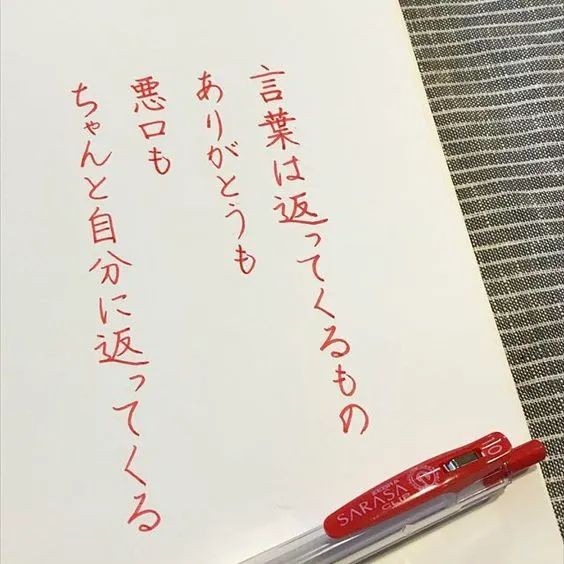 言葉は返ってくるもの
ありがとうも
悪口も
ちゃんと自分に返ってくる
ZEBRA
SARASA
CLIP
1.0